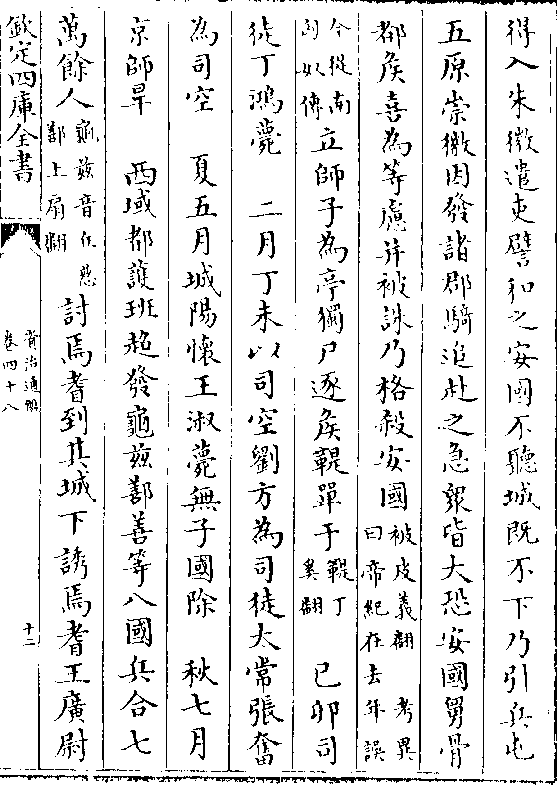 得入朱徽遣吏譬和之安國不聽城既不下乃引兵屯
五原崇徽因發諸郡騎追赴之急衆皆大恐安國舅骨
都侯喜為等慮并被誅乃格殺安國被皮義翻 考異曰帝紀在去年誤
今從南匈奴傳立師子為亭獨尸逐侯鞮單于鞮丁奚翻 己卯司
徒丁鴻薨 二月丁未以司空劉方為司徒太常張奮
為司空 夏五月城陽懷王淑薨無子國除 秋七月
京師旱 西域都護班超發龜兹鄯善等八國兵合七
萬餘人龜兹音丘慈鄯上扇翻討焉耆到其城下誘焉耆王廣尉
欽定四庫全書
資治通鑑
卷四十八
十二